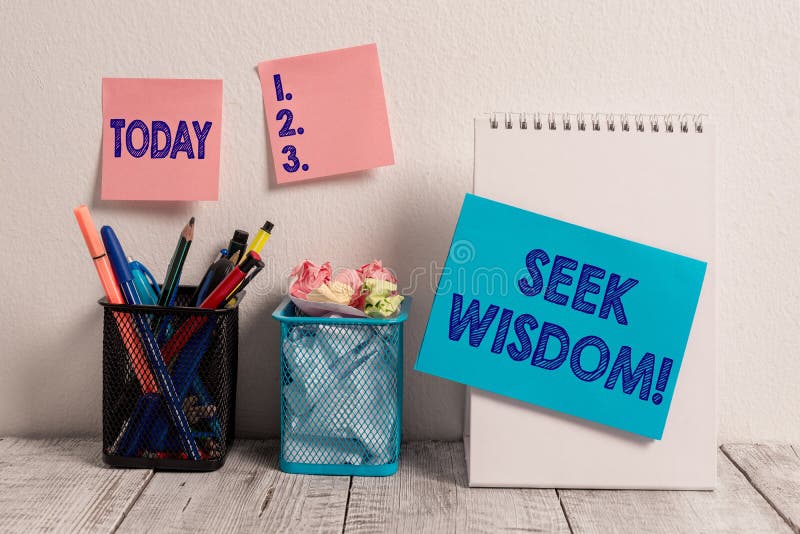 TODAY
1.
2.
3.
SEEK
WISDOM!
dreamstime